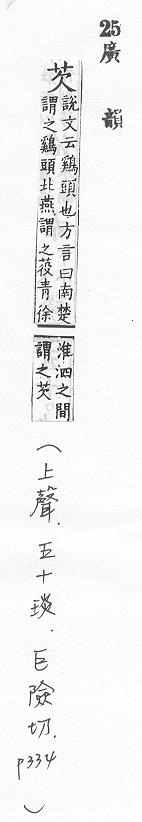 25
廣韻
芡
說文云鷄頭也方言曰南楚
謂之鷄頭北燕謂之葰青徐
淮泗之間
謂之芡
(上聲.五十琰.巨險切.P334)